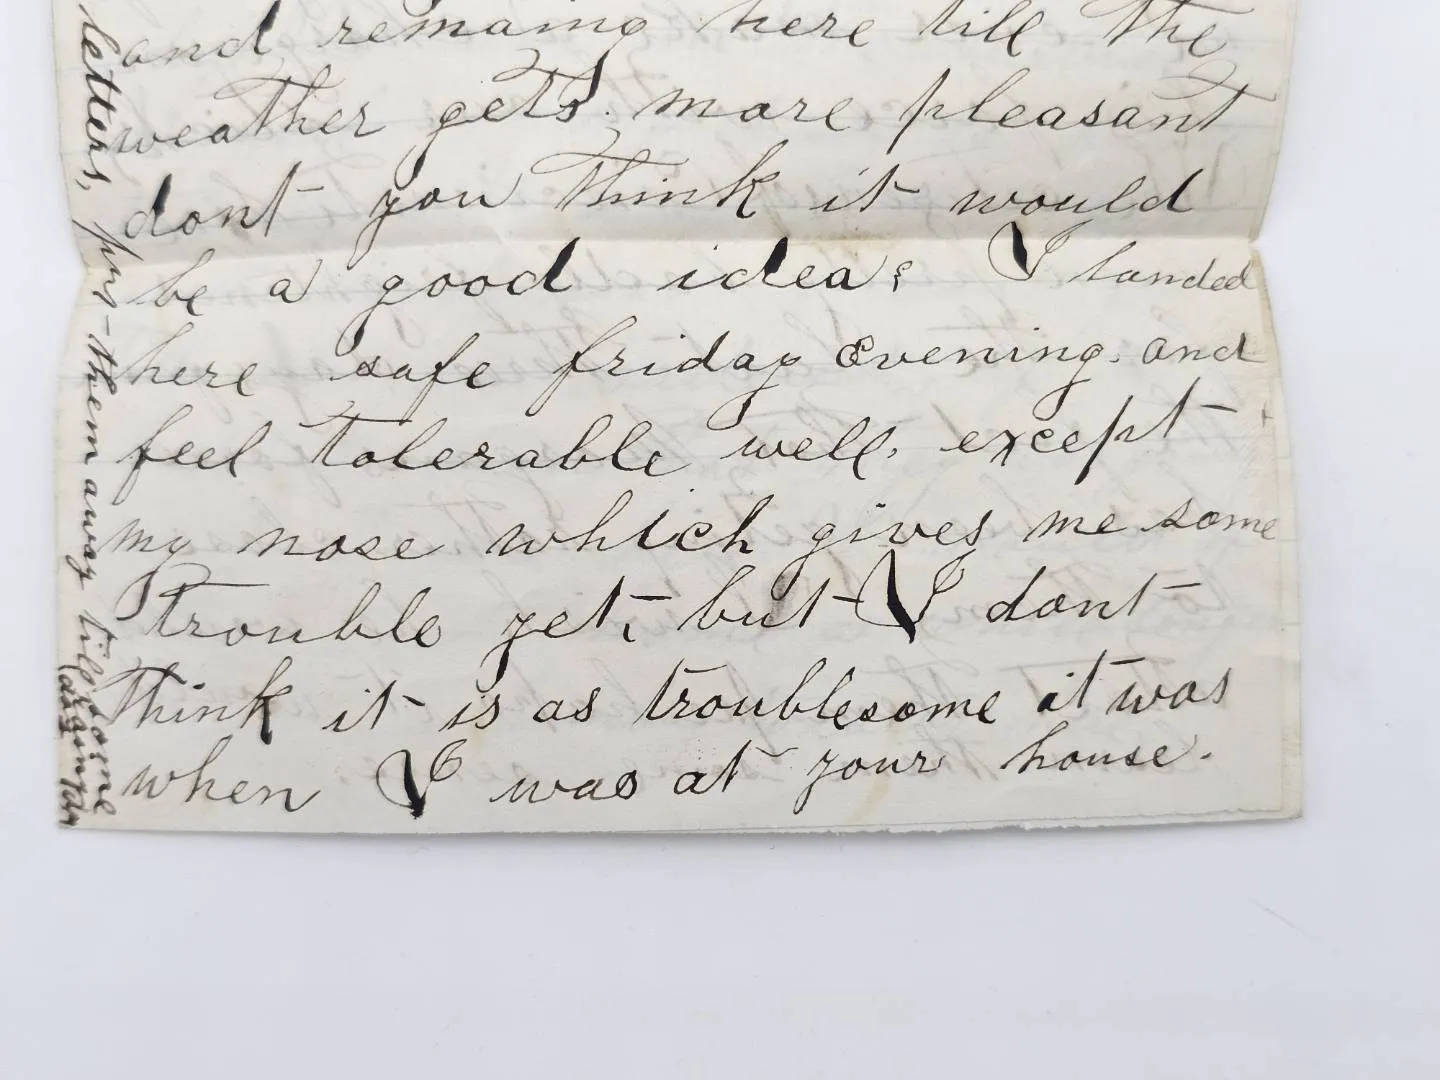 and remaing here till the
weather gets more pleasant
dont you think it would
be a good idea? I landed
here safe friday Evening. and
feel tolerable well, except
my nose which gives me some
trouble yet, but I dont
think it is as troublesome it was
when I was at your house.
letters, put them away till some